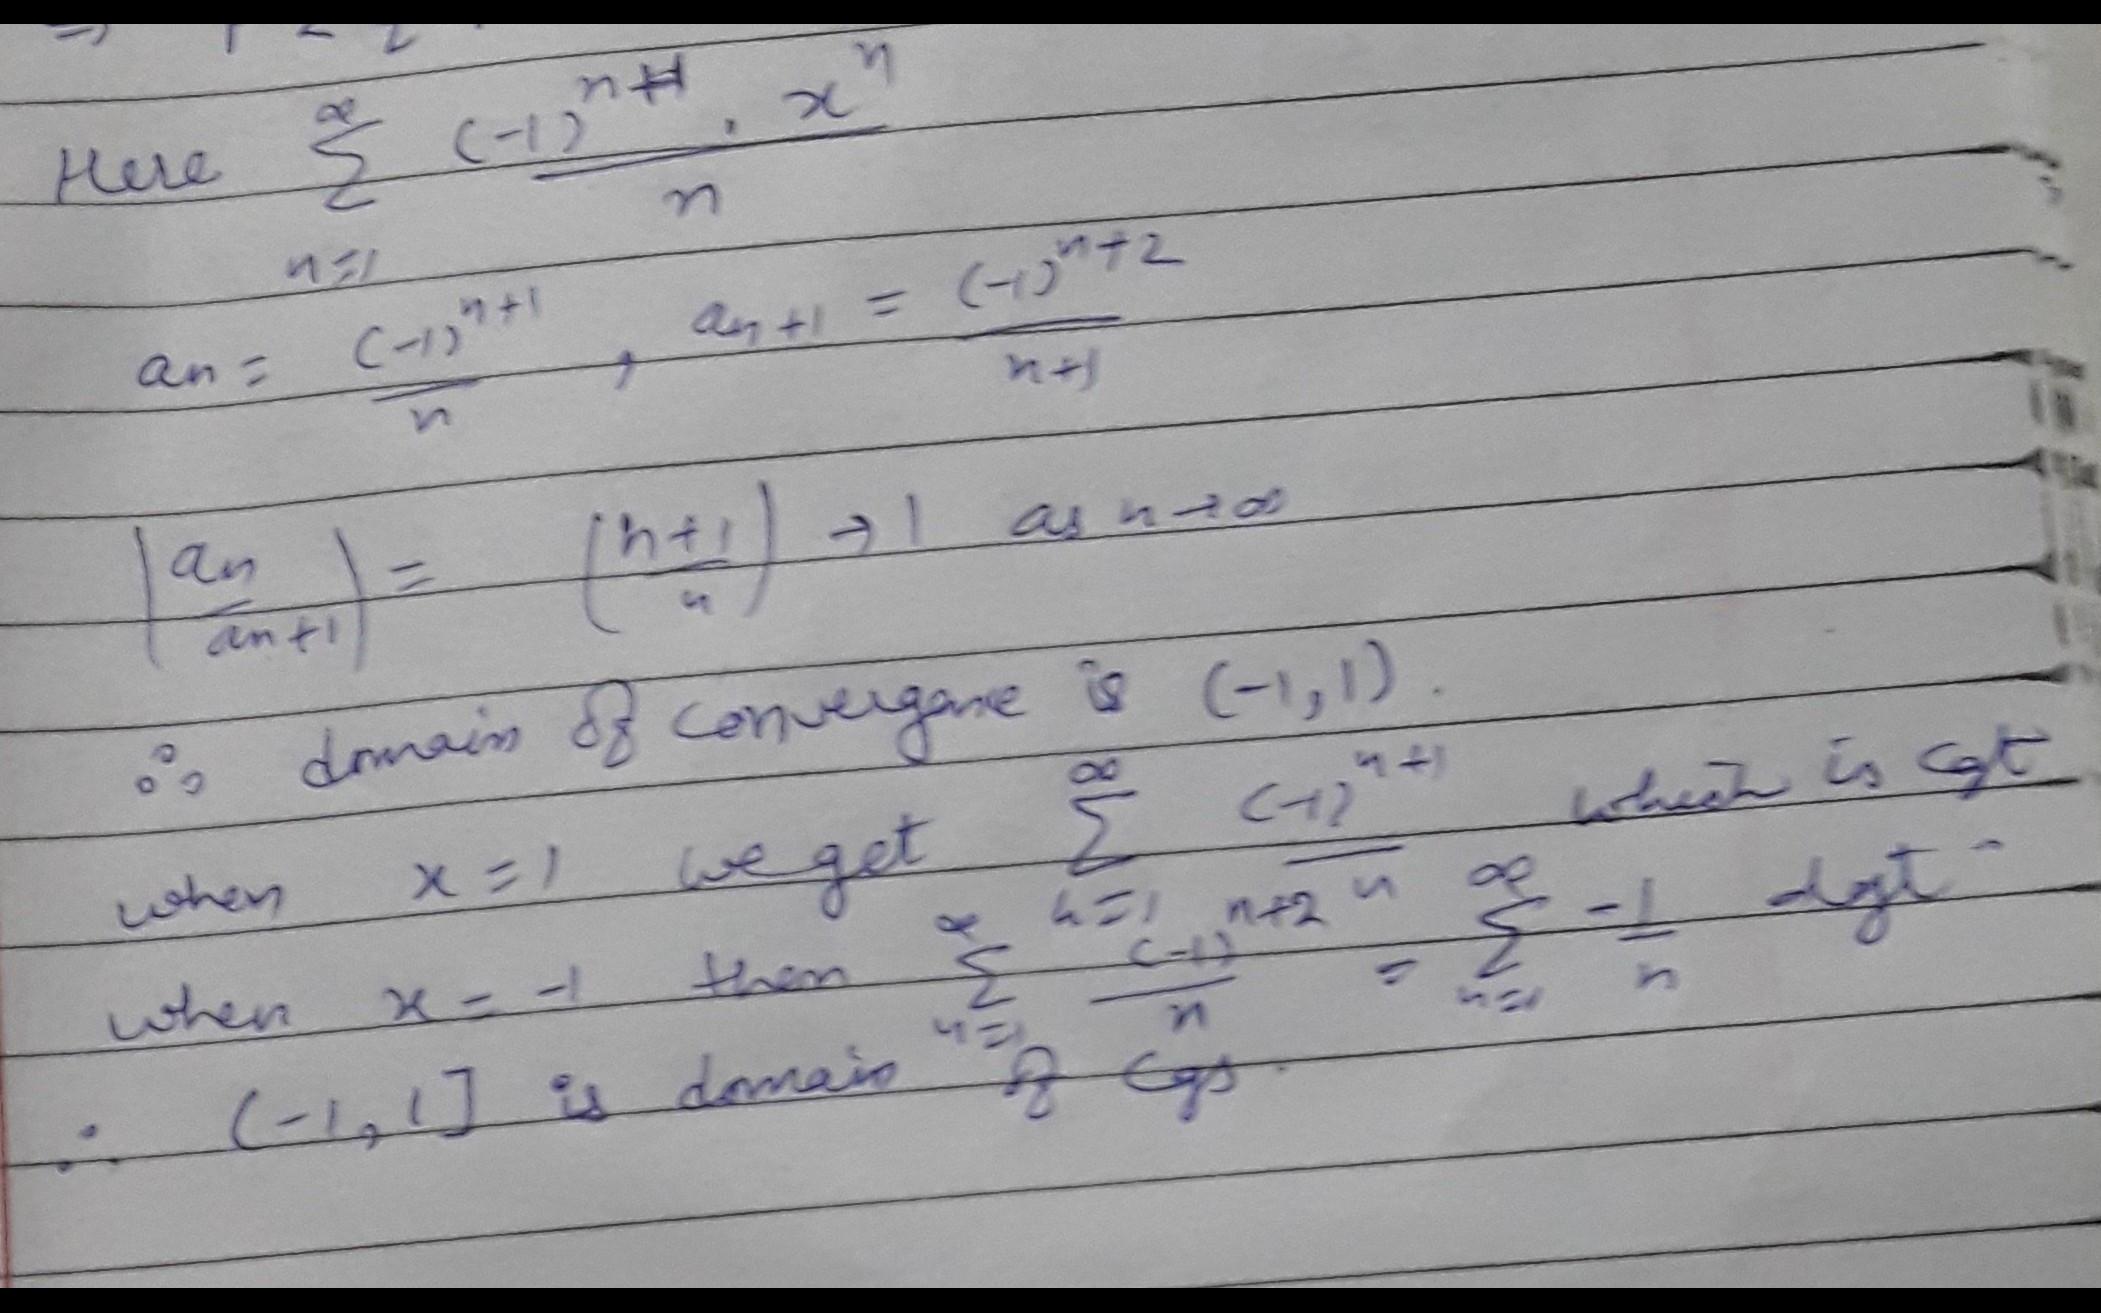 Here ∞ Σ n=1 (-1)^(n+1) . x^n / n
an = (-1)^(n+1) / n , an+1 = (-1)^(n+2) / n+1
|an / an+1| = (n+1 / n) → 1 as n→∞
∴ domain of convergane is (-1,1).
when x=1 we get ∞ Σ n=1 (-1)^(n+1) / n which is cgt
when x=-1 then ∞ Σ n=1 (-1)^(n+2) / n = ∞ Σ n=1 -1/n dgt
∴ (-1,1] is domain of cgs.